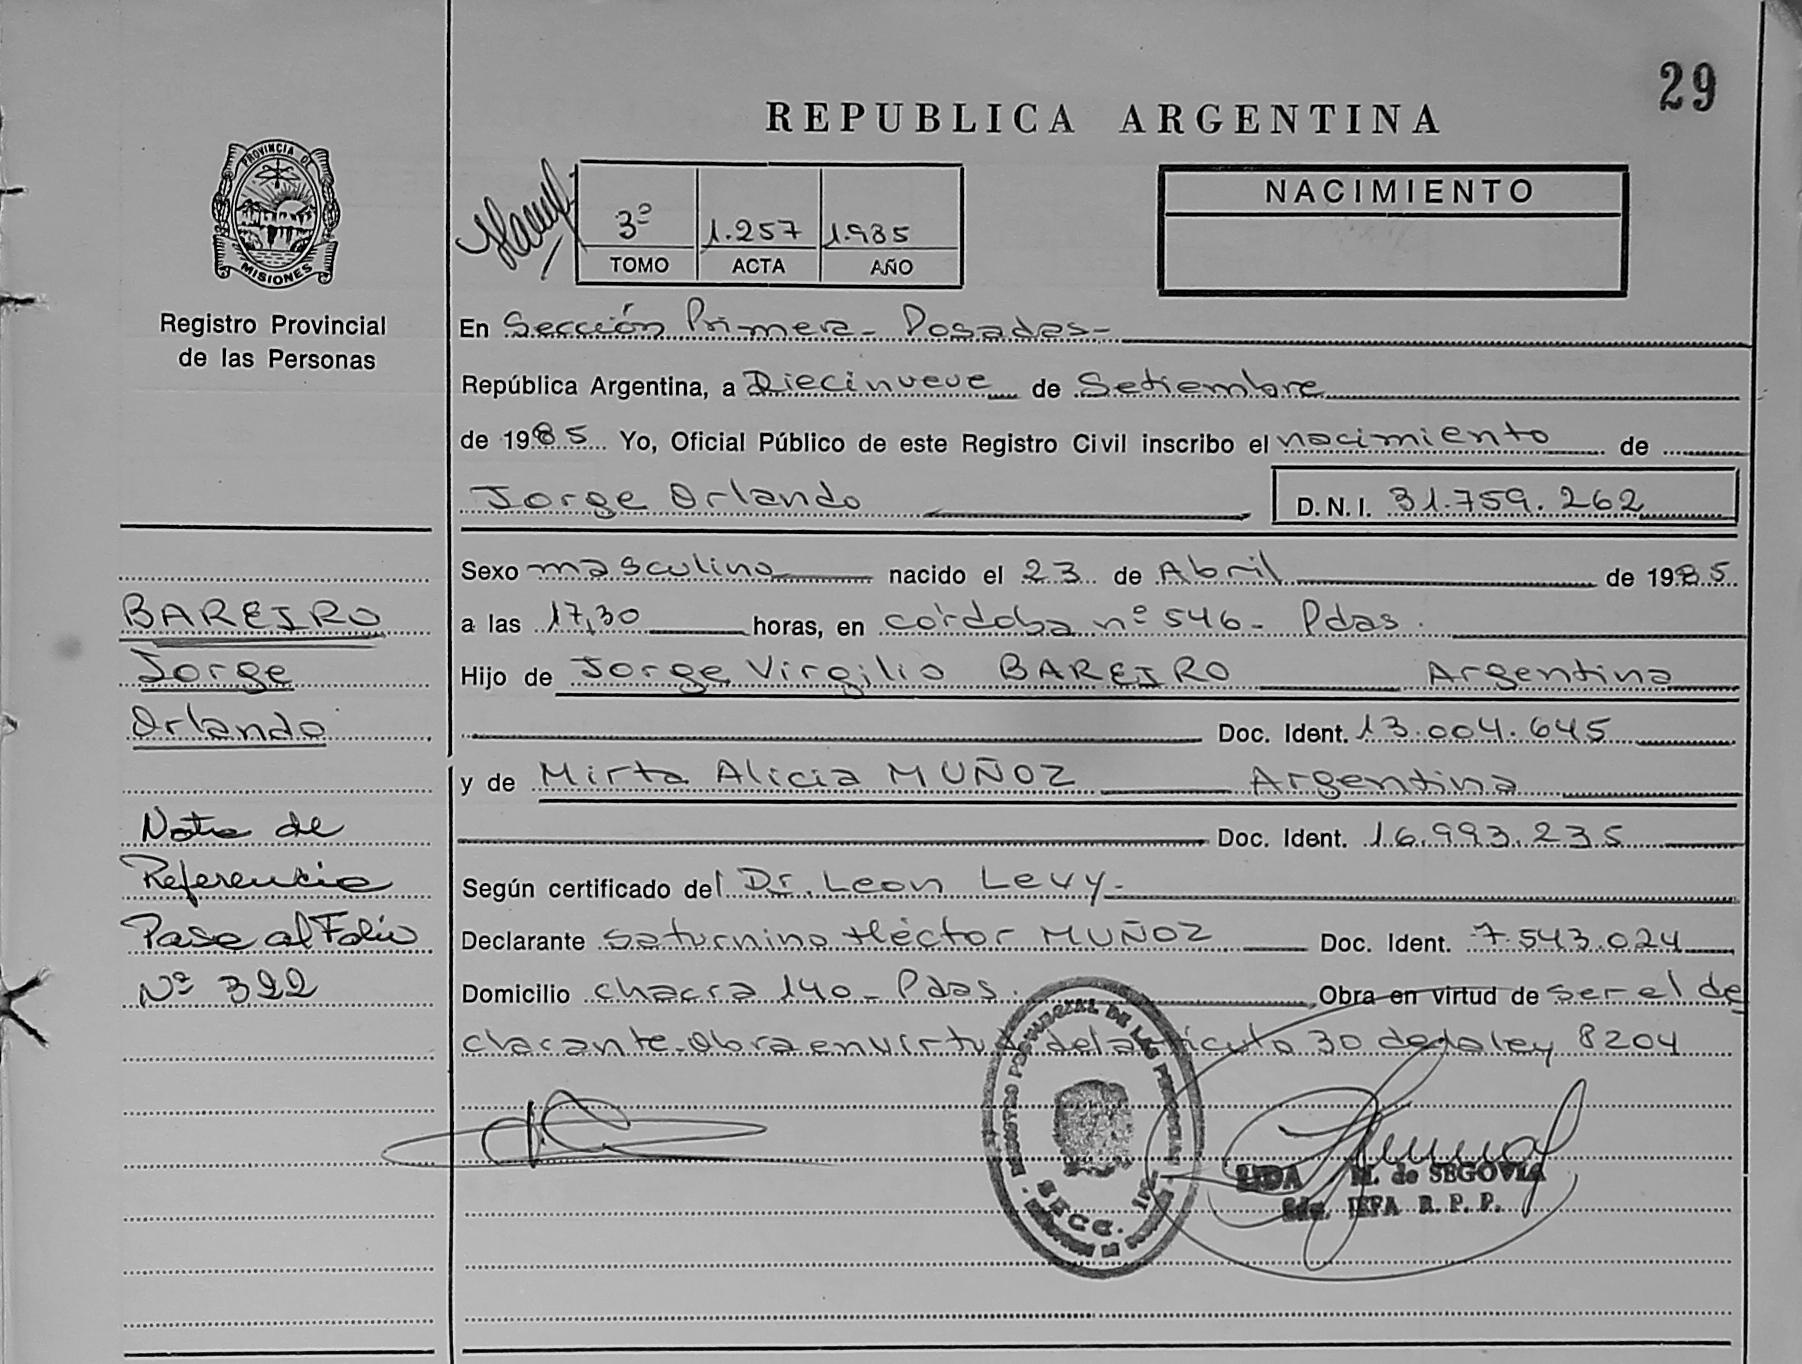 29
REPUBLICA ARGENTINA
PROVINCIA DE
MISIONES
Registro Provincial
de las Personas
3º 1.257 1.985
TOMO ACTA AÑO
NACIMIENTO
En Sección Primera - Posadas -
República Argentina, a Diecinueve de Setiembre
de 1985 Yo, Oficial Público de este Registro Civil inscribo el nacimiento de
Jorge Orlando D.N.I. 31.759.262
Sexo masculino nacido el 23 de Abril de 1985
a las 17,30 horas, en córdoba nº 546 - Pdas.
Hijo de Jorge Virgilio BAREIRO Argentina
Doc. Ident. 13.004.645
y de Mirta Alicia MUÑOZ Argentina
Doc. Ident. 16.993.235
Según certificado del Dr. Leon Levy -
Declarante Saturnino Héctor MUÑOZ Doc. Ident. 7.543.024
Domicilio chacra 140 - Pdas. Obra en virtud de ser el de
clarante. Obra en virtud del artículo 30 de la ley 8204
BAREIRO
Jorge
Orlando
Nota de
Referencia
Pase al Folio
Nº 322
REGISTRO PROVINCIAL DE LAS PERSONAS
SECC. 1ª
LIDA M. de SEGOVIA
JEFA R. P. P.